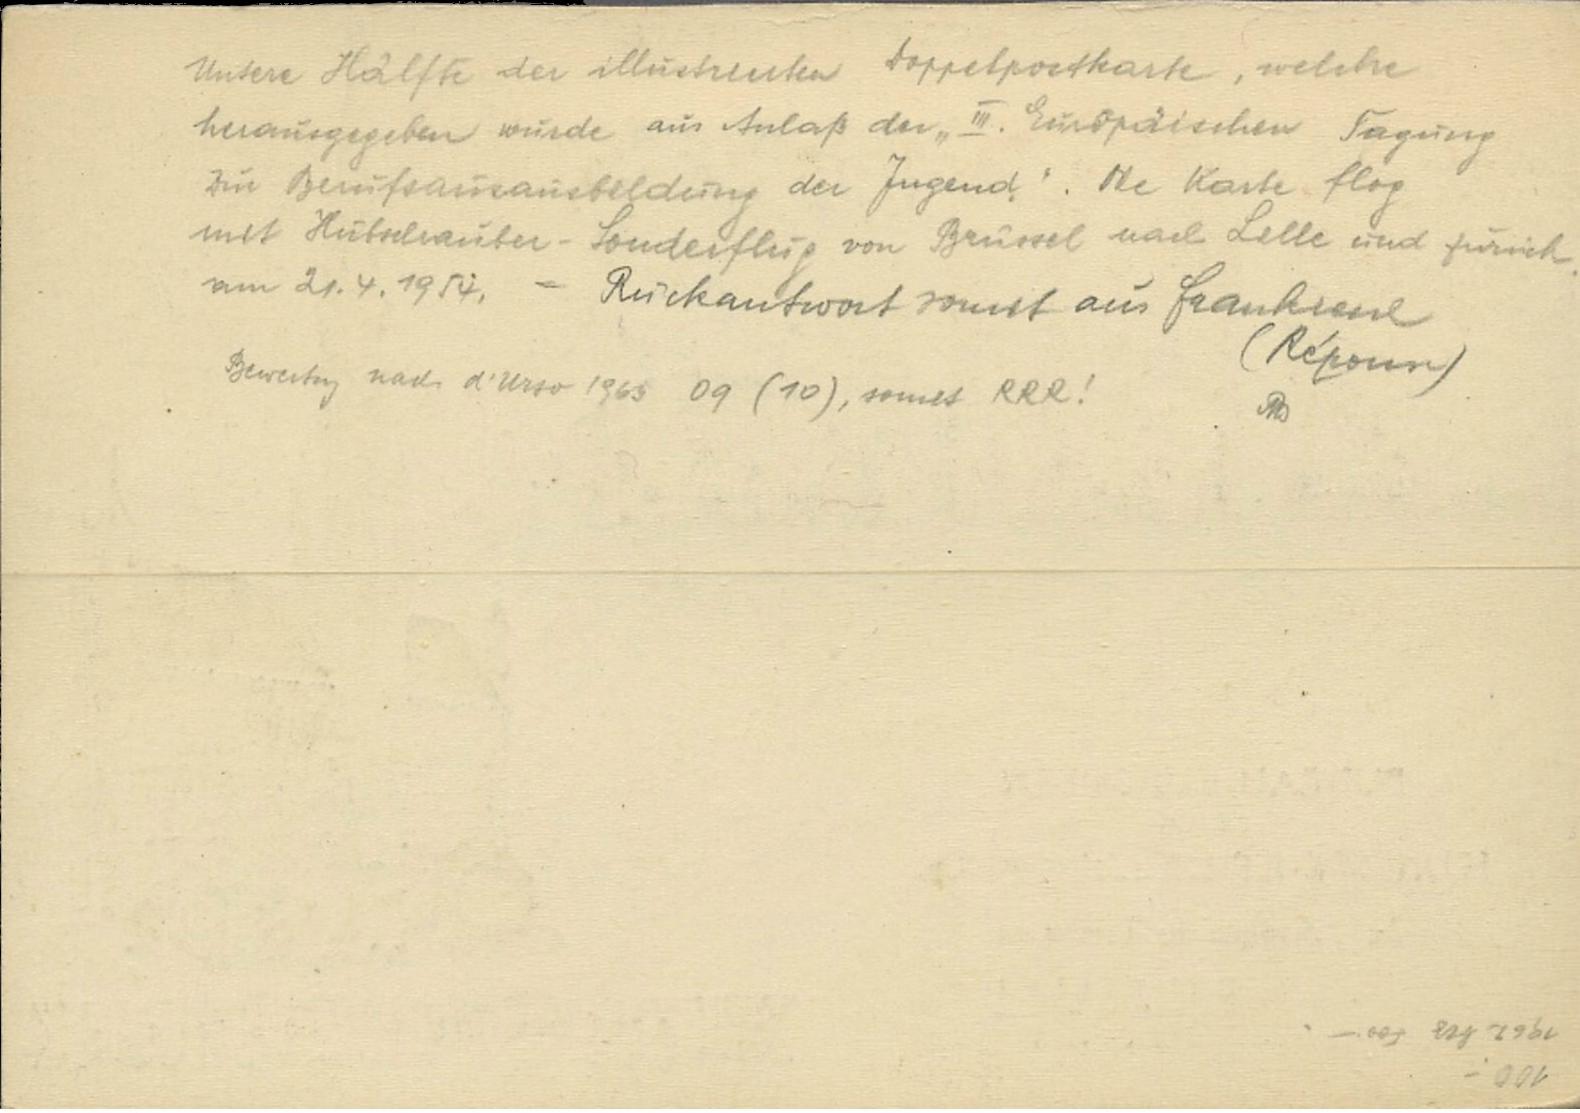 Untere Hälfte der illustrierten Doppelpostkarte, welche
herausgegeben wurde aus Anlaß der „III. Europäischen Tagung
zur Berufsausausbildung der Jugend". Die Karte flog
mit Hubschrauber-Sonderflug von Brüssel nach Lille und zurück
am 21.4.1954. - Rückantwort somit aus Frankreich
(Réponse)
Bewertung nach d'Urso 1965 09 (10), somit RRR!
100.-